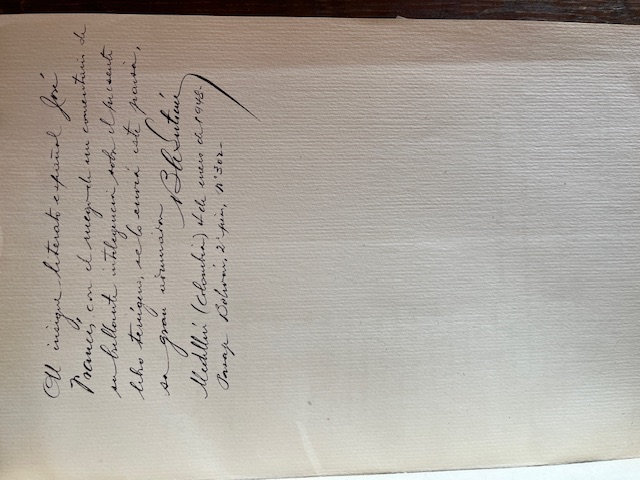 Al insigne literato español José
Francés, con el ruego de un comentario de
su brillante inteligencia sobre el presente
libro terrígeno, se lo envía este paisa,
su gran admirador
Medellín (Colombia) de enero de
Pasaje Bolívar, 2º piso, Nº 302-